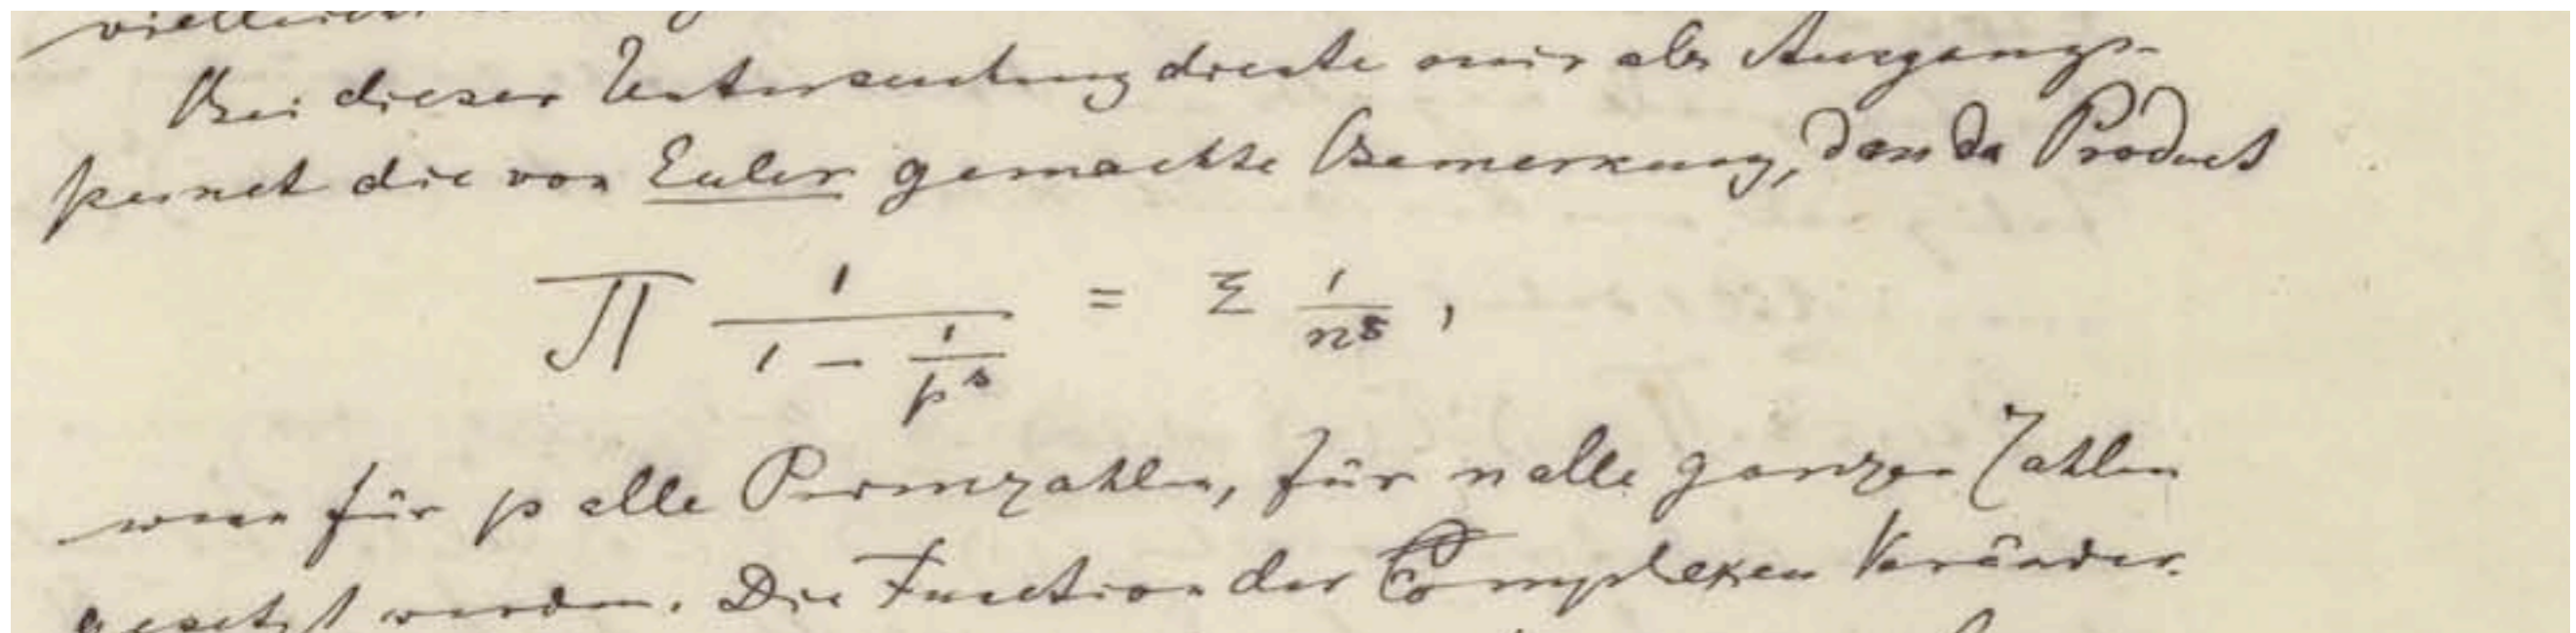 Bei dieser Untersuchung diente mir als Ausgangs-
punct die von Euler gemachte Bemerkung, dass das Product
∏ 1/(1 − 1/p^s) = Σ 1/n^s ,
wenn für p alle Primzahlen, für n alle ganzen Zahlen
gesetzt werden. Die Function der complexen Veränder-